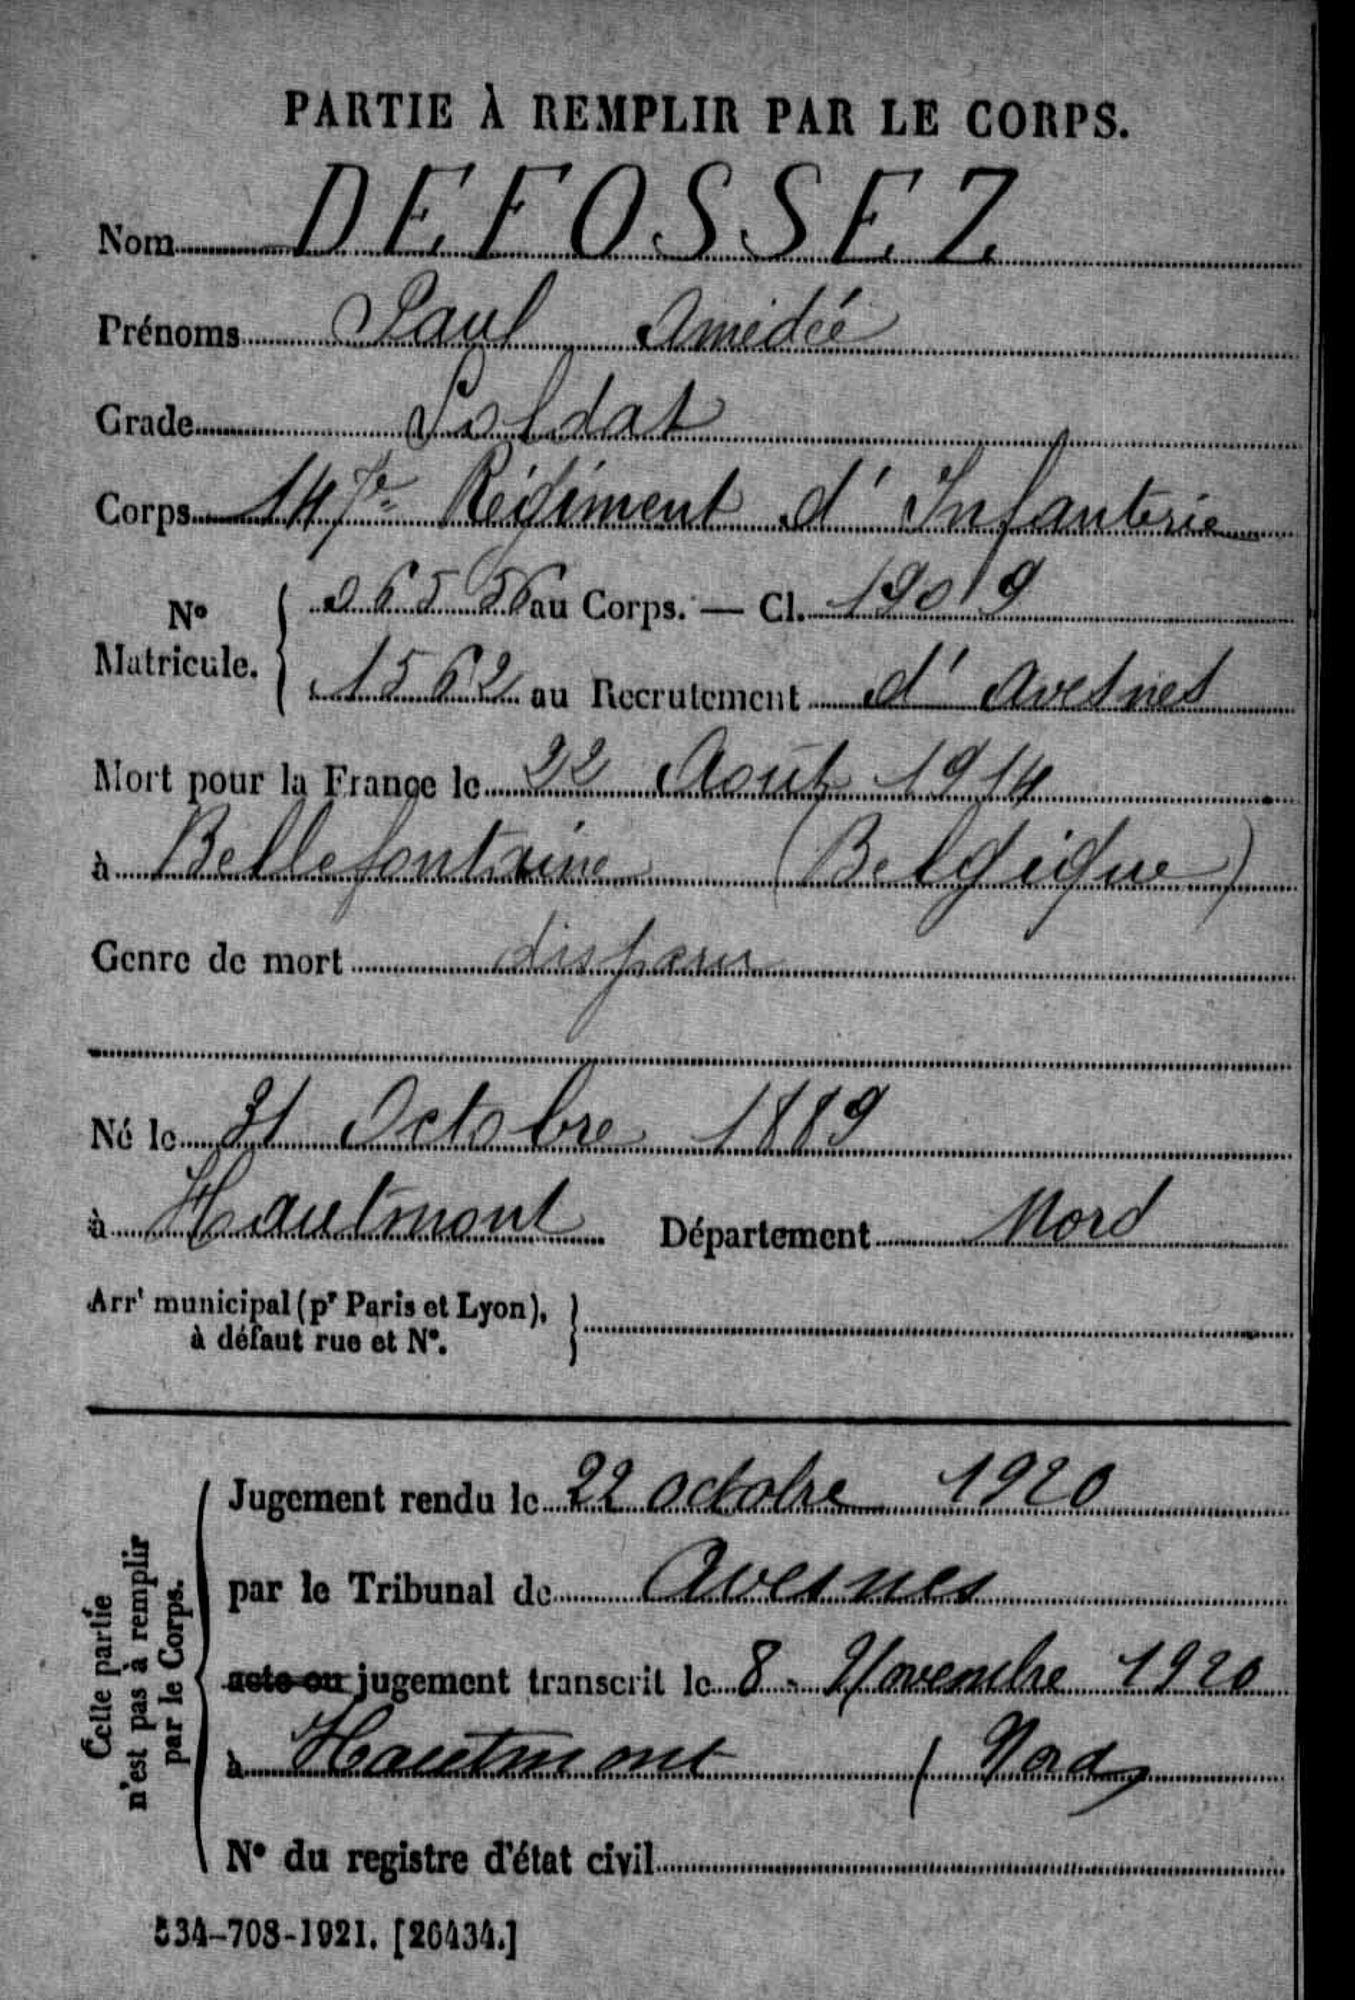 PARTIE À REMPLIR PAR LE CORPS.
Nom DEFOSSEZ
Prénoms Paul Amédée
Grade Soldat
Corps 147e Régiment d'Infanterie
N° Matricule. { 06556 au Corps. — Cl. 1909
1562 au Recrutement d'Avesnes
Mort pour la France le 22 Août 1914
à Bellefontaine (Belgique)
Genre de mort disparu
Né le 31 Octobre 1889
à Hautmont Département Nord
Arrt municipal (pr Paris et Lyon), }
à défaut rue et N°.
Cette partie
n'est pas à remplir
par le Corps.
Jugement rendu le 22 octobre 1920
par le Tribunal de Avesnes
acte ou jugement transcrit le 8 - Novembre 1920
à Hautmont (Nord)
N° du registre d'état civil
534-708-1921. [26434.]